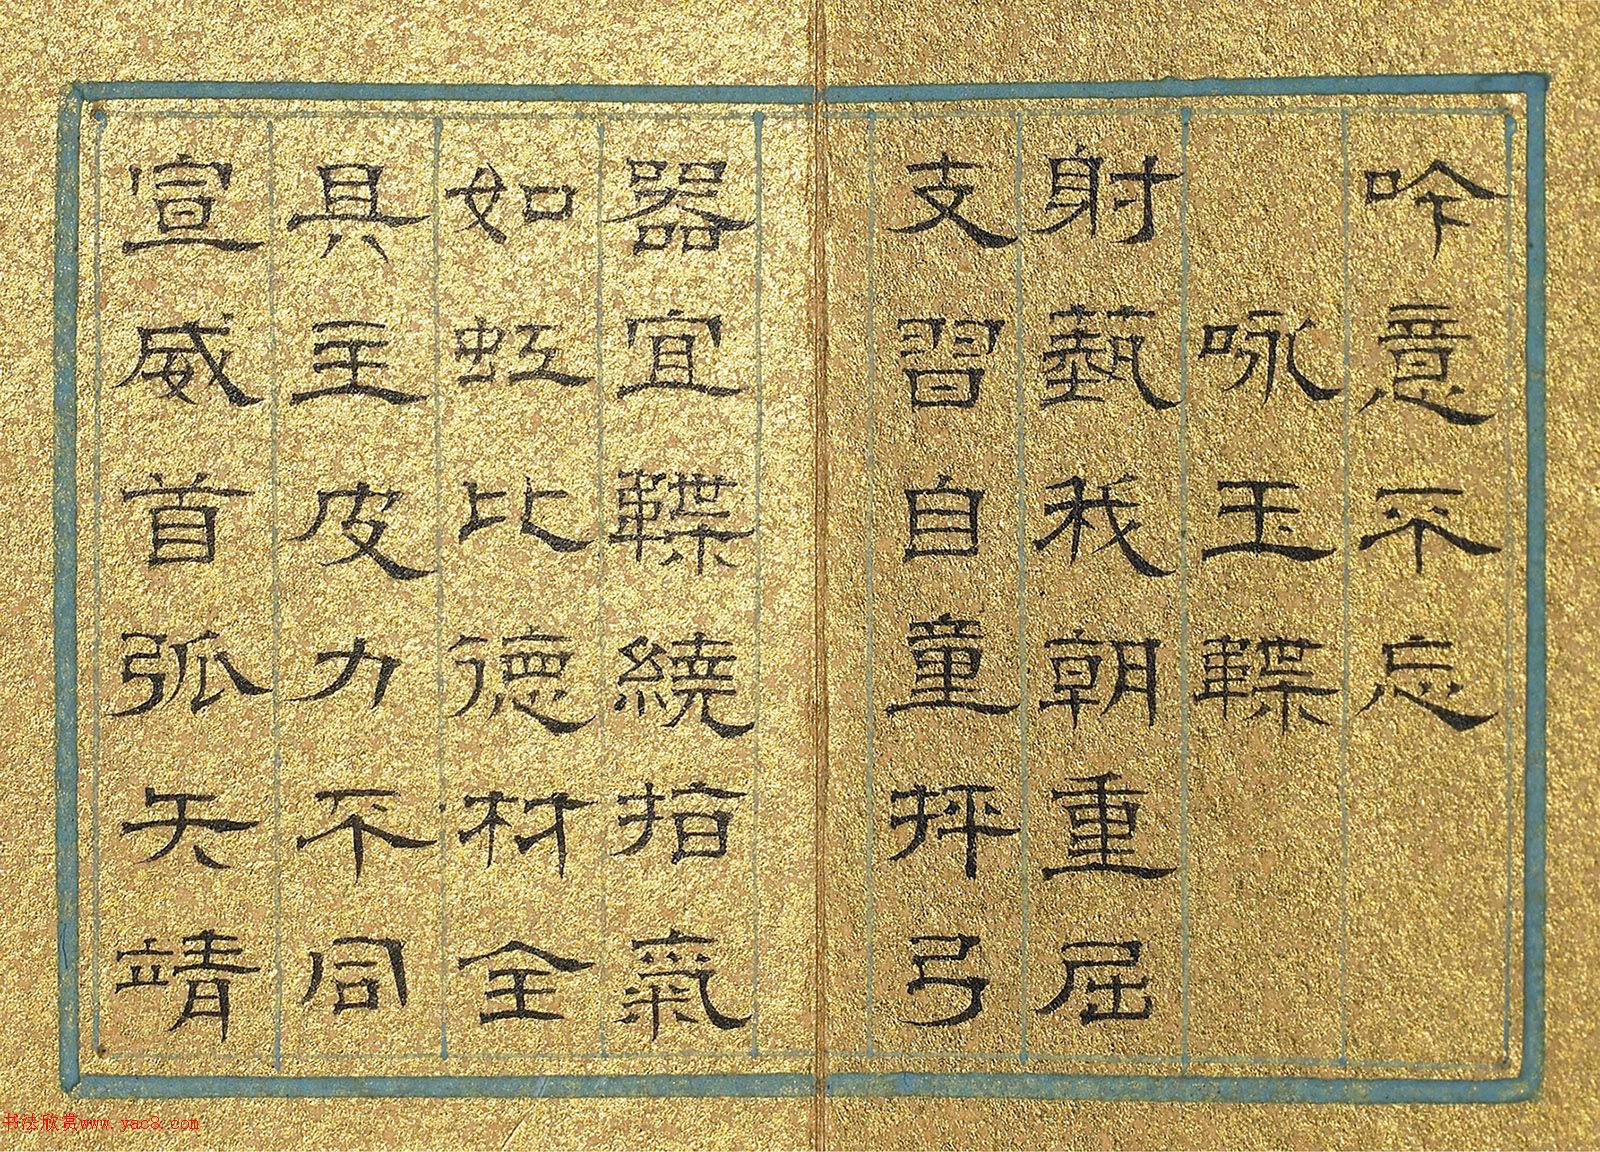 吟意不忘
咏玉韘
射藝我朝重屈
支習自童抨弓
器宜韘繞指氣
如虹比德材全
具主皮力不同
宣威首弧矢靖
书法欣赏www.yac8.com